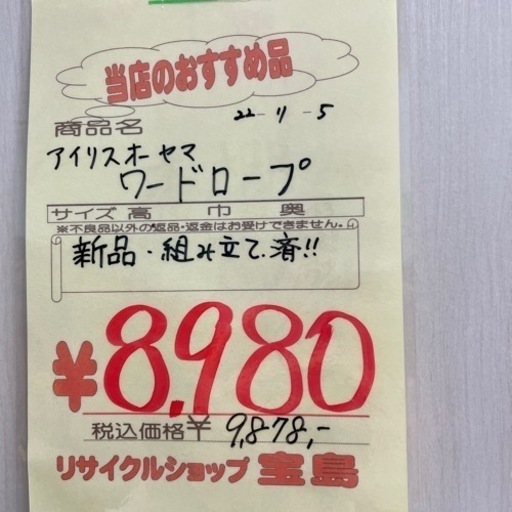 当店のおすすめ品
22-11-5
商品名
アイリスオーヤマ
ワードローブ
サイズ 高 巾 奥
※不良品以外の返品・返金はお受けできません。
新品・組み立て済!!
¥8,980
税込価格¥ 9,878,-
リサイクルショップ 宝島